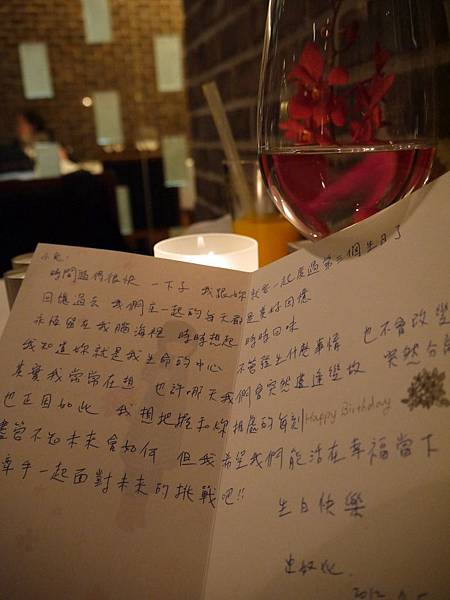 小兔:
時間過得很快 一下子 我跟妳就要一起度過第三個生日了
回想過去 我們在一起的每天都是美好回憶
永恆留在我腦海裡 時時想起 時時回味
我知道妳就是我生命的中心 不管發生什麼事情 也不會改變
真愛我常常在想 也許哪天我們會突然遭逢變故 突然分離
也正因如此 我想把握和妳相處的每刻
Happy Birthday
儘管不知未來會如何 但我希望我們能活在幸福當下
牽手一起面對未來的挑戰吧!!
生日快樂